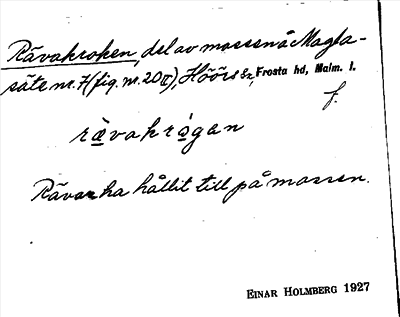 Rävakroken, del av mossen å Magla-
säte nr. 7 (fig. nr. 20 E), Höörs sn, Frosta hd, Malm. l.
f.
rävakrågan
Rävar ha hållit till på mossen.
EINAR HOLMBERG 1927